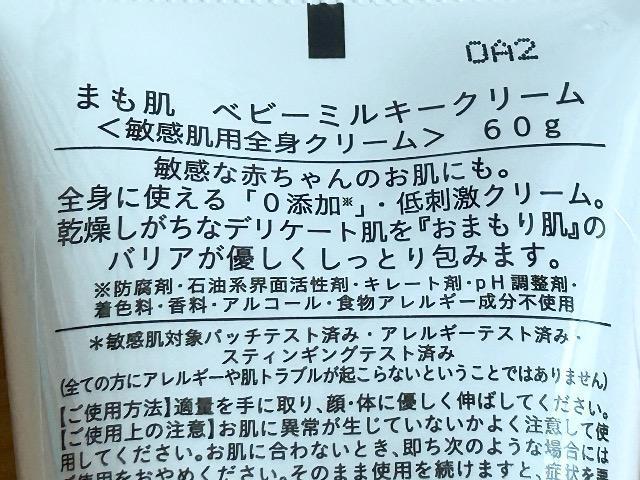 0A2
まも肌 ベビーミルキークリーム
＜敏感肌用全身クリーム＞ 60g
敏感な赤ちゃんのお肌にも。
全身に使える「0添加※」・低刺激クリーム。
乾燥しがちなデリケート肌を『おまもり肌』の
バリアが優しくしっとり包みます。
※防腐剤・石油系界面活性剤・キレート剤・pH調整剤・
着色料・香料・アルコール・食物アレルギー成分不使用
＊敏感肌対象パッチテスト済み・アレルギーテスト済み・
スティンギングテスト済み
(全ての方にアレルギーや肌トラブルが起こらないということではありません)
【ご使用方法】適量を手に取り、顔・体に優しく伸ばしてください。
【ご使用上の注意】お肌に異常が生じていないかよく注意して使
用してください。お肌に合わないとき、即ち次のような場合には
ご使用をおやめください。そのまま使用を続けますと、症状を悪